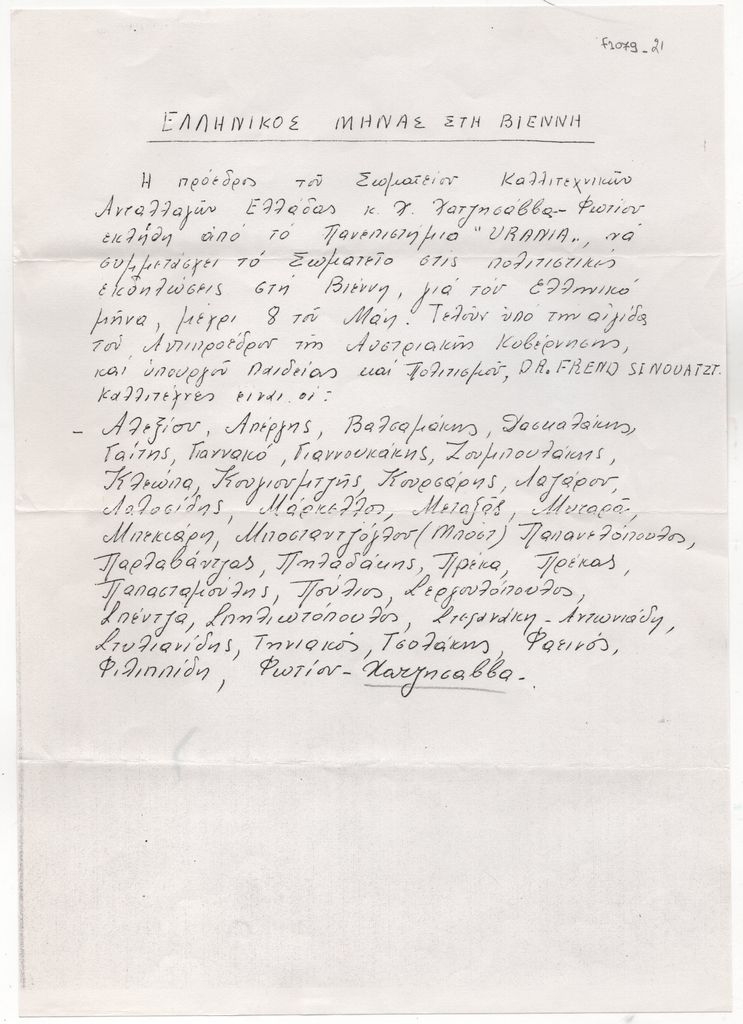 f2079-21
ΕΛΛΗΝΙΚΟΣ ΜΗΝΑΣ ΣΤΗ ΒΙΕΝΝΗ
Η πρόεδρος τοῦ Σωματείου Καλλιτεχνικῶν
Ανταλλαγῶν Ελλάδας κ. Χ. Χατζησάββα-Φωτίου
εκλήθη ἀπό τό Πανεπιστήμιο "URANIA", νά
συμμετάσχει τό Σωματείο στις πολιτιστικές
εκδηλώσεις στή Βιέννη, γιά τόν Ελληνικό
μήνα, μέχρι 8 τοῦ Μάη. Τελοῦν ὑπό την αἰγίδα
τοῦ Αντιπροέδρου τῆς Αυστριακῆς Κυβέρνησης,
καί ὑπουργοῦ Παιδείας καί Πολιτισμοῦ, DR. FREND SINOUATZT.
Καλλιτέχνες ειναι οἱ:
- Αλεξίου, Απέργης, Βαλσαμάκης, Δασκαλάκης,
Γαΐτης, Γιαννακό, Γιαννουκάκης, Ζουμπουλάκης,
Κλεώπα, Κουγιουμτζῆς, Κουρσάρης, Λαζάρου,
Λολοσίδης, Μάρκελλος, Μεταξᾶς, Μυταρᾶ,
Μπεκιάρη, Μποσταντζόγλου (Μπόστ) Παπανελόπουλος,
Παρλαβάντζας, Πηλαδάκης, Πρέκα, Πρέκας,
Παπασταμούλης, Πούλιος, Σεργουλόπουλος,
Σπέντζα, Σπηλιωτόπουλος, Στεφανάκη - Αντωνιάδη,
Στυλιανίδης, Τηνιακός, Τσολάκης, Φαεινός,
Φιλιππίδη, Φωτίου - Χατζησαββα.